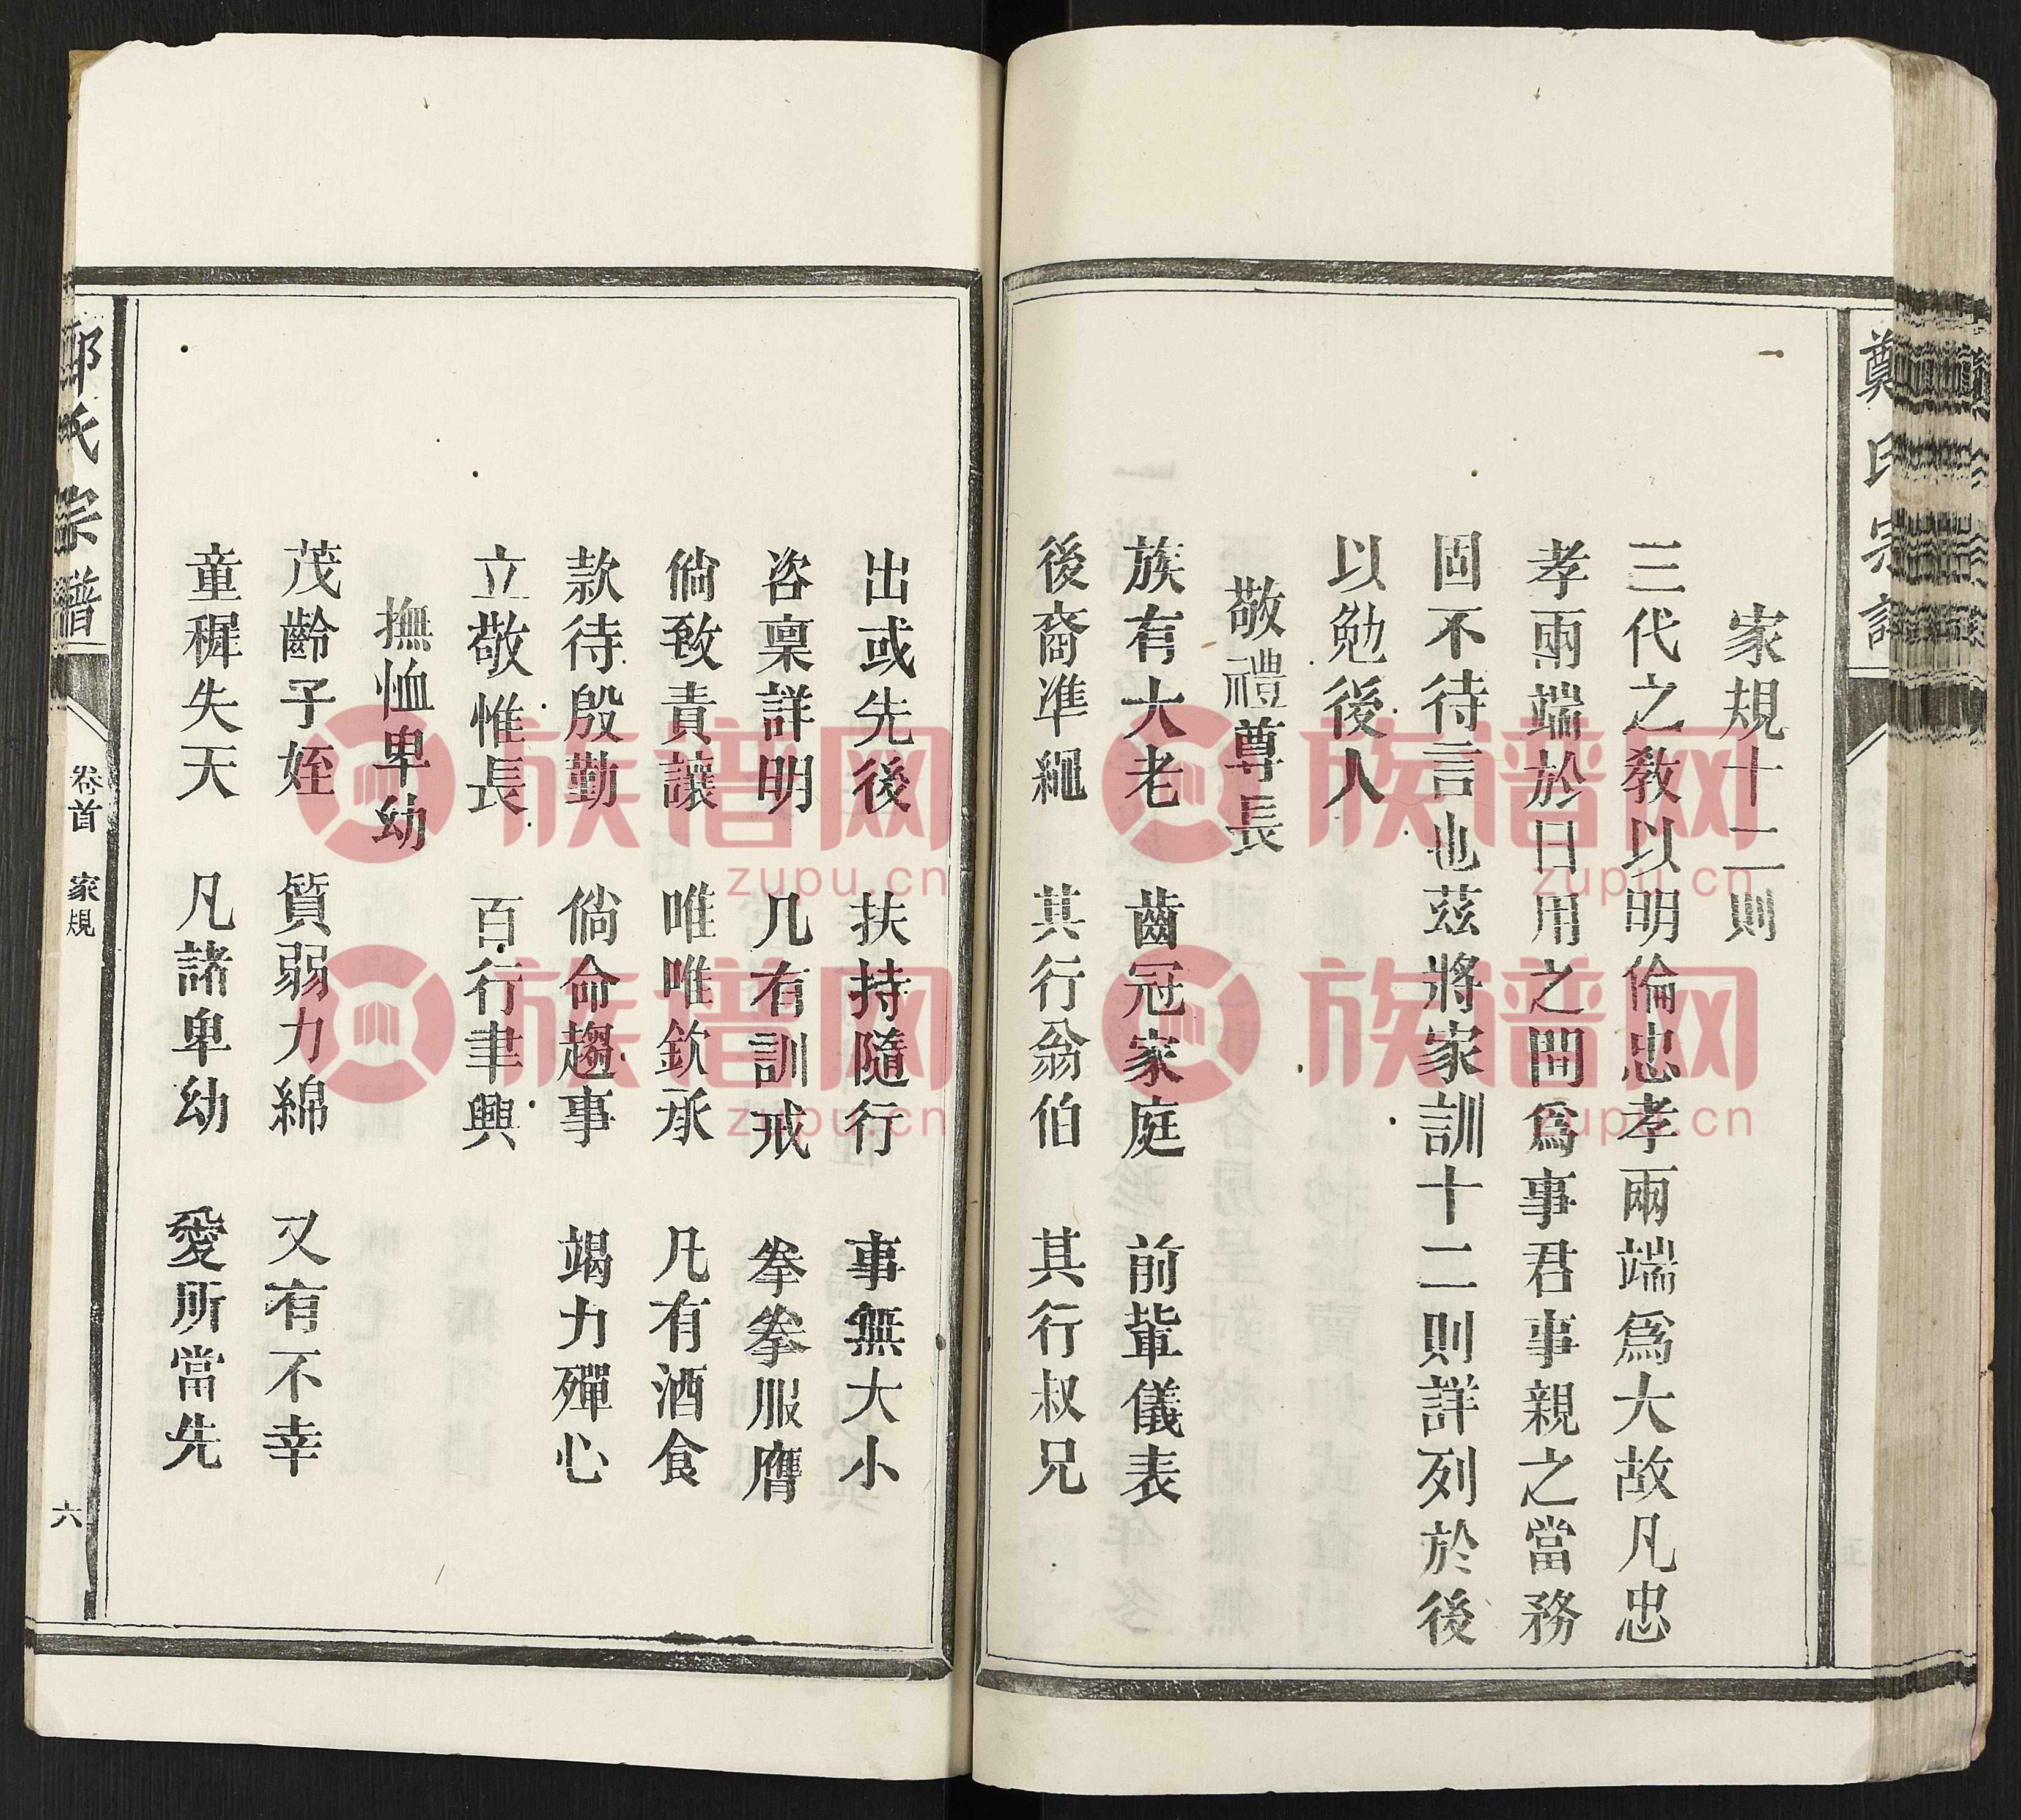 鄭氏宗譜
家規十二則
三代之敎以明倫忠孝兩端爲大故凡忠
孝兩端於日用之間爲事君事親之當務
固不待言也茲將家訓十二則詳列於後
以勉後人
敬禮尊長
族有大老 齒冠家庭 前輩儀表
後裔準繩 其行翁伯 其行叔兄
出或先後 扶持隨行 事無大小
咨稟詳明 凡有訓戒 拳拳服膺
倘致責讓 唯唯欽承 凡有酒食
款待殷勤 倘命趨事 竭力殫心
立敬惟長 百行聿興
撫恤卑幼
茂齡子姪 質弱力綿 又有不幸
童穉失天 凡諸卑幼 愛所當先
鄭氏宗譜
卷首 家規
六
族谱网
zupu.cn
族谱网
zupu.cn
族谱网
zupu.cn
族谱网
zupu.cn